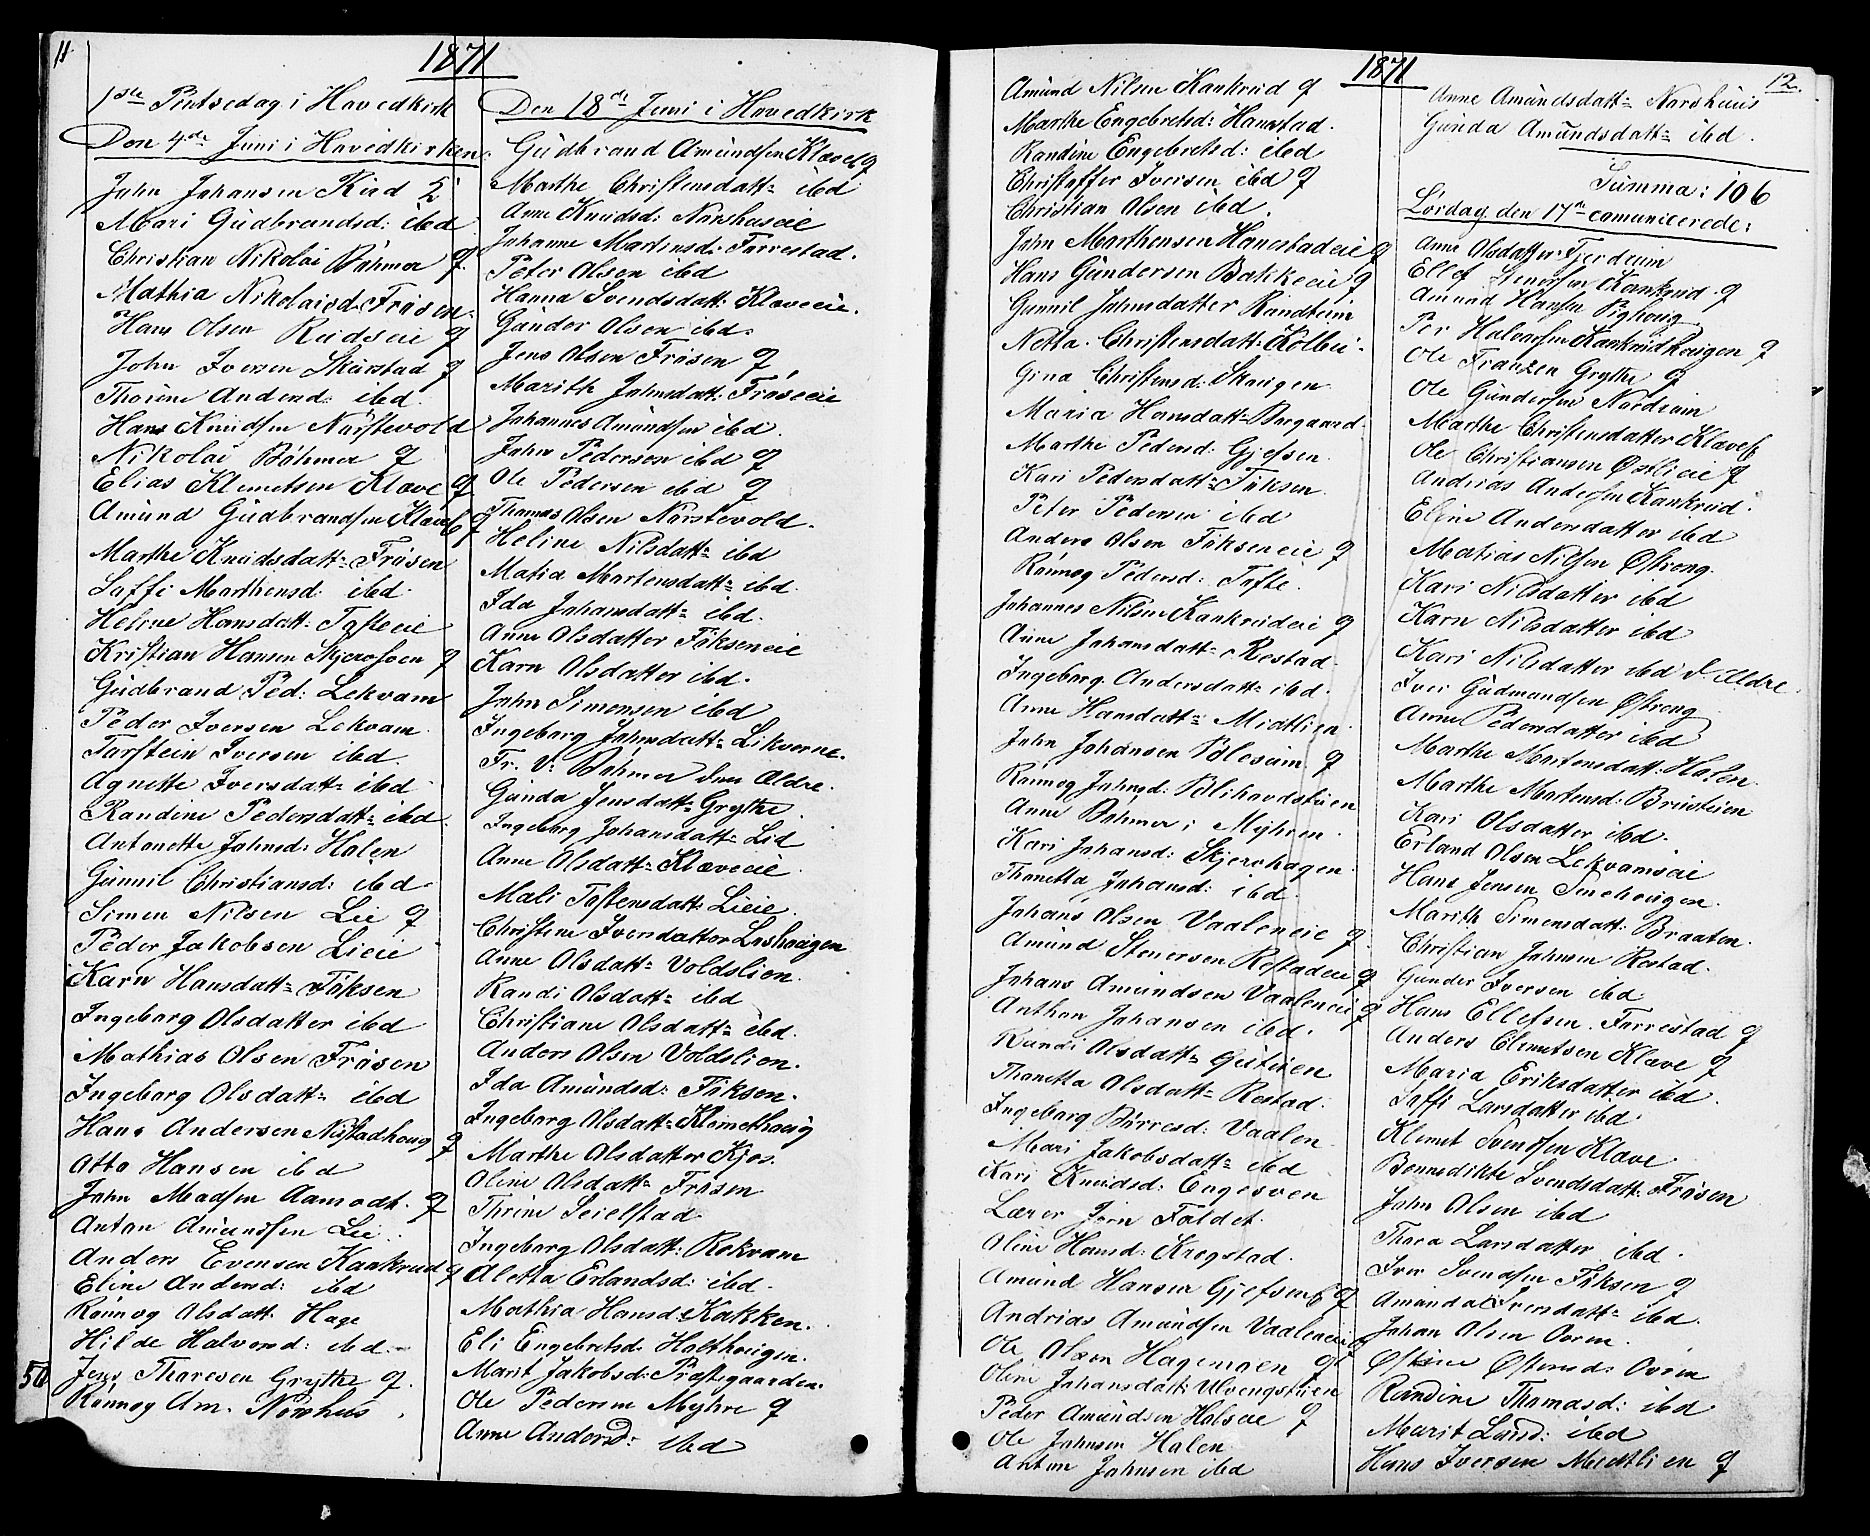 11.
1871
1ste Pintsedag i Hovedkirk
Den 4de Juni i Hovedkirken
John Johansen Kind 2
Mari Gudbrandsd: ibd
Christian Nikolai Böhmer q
Mathia Nikolaisd: Frösen
Hans Olsen Rudseie q
John Iversen Skurstad q
Thorine Andersd: ibd
Hans Knudsen Nörstevold
Nikolai Böhmer q
Elias Klemetsen Klave q
Amund Gudbrandsen Klavef q
Marthe Knudsdatt= Frösen
Soffi Marthensd: ibd
Heline Hansdatt= Tofteeie
Kristian Hansen Skjerosven q
Gudbrand Ped: Lekvam
Peder Iversen Lekvam
Torstein Iversen ibd.
Agnette Iversdatt= ibd
Randine Pedersdatt= ibd
Antonette Johnsd: Holen
Gunnil Christiansd: ibd
Simen Nilsen Lie q
Peder Jakobsen Lieie
Karn Hansdatt= Föksen
Ingeborg Olsdatter ibd
Mathias Olsen Frösen
Ingeborg Olsdatt= ibd
Hans Andersen Nystadhoug q
Otto Hansen ibd
John Madsen Aamodt. q
Anton Amundsen Lie
Anders Evensen Kankrud q
Eline Andersd: ibd
Rönnog Olsdatt. Hage
Hilde Halvorsd: ibd.
50 Jens Thoresen Grytte q.
Rönnog Am. Nörshus
Den 18de Juni i Hovedkirk
Gudbrand Amundsen Klavef q
Marthe Christensdatt= ibd
Anne Knudsd: Nörshuseie
Johanne Martinsd: Forrestad.
Peter Olsen ibd
Hanna Svendsdatt: Klaveeie.
Gunder Olsen ibd.
Jens Olsen Frösen q
Marith Johnsdatt: Fröseeie
Johannes Amundsen ibd.
John Pedersen ibd q
Ole Pedersen ibd q
Thomas Olsen Nörstevold.
Heline Nilsdatt= ibd
Matia Martensdatt= ibd.
Ida Johansdatt= ibd.
Anne Olsdatter Fökseneie
Karn Olsdatter ibd.
John Simensen ibd
Ingeborg Johnsdatt= Likverne.
Fr. V. Böhmer den Ældre.
Gunda Jensdatt= Grytte.
Ingeborg Johansdatt= Lid
Anne Olsdatt= Klaveeie.
Mali Toftensdatt: Lieie.
Christine Iversdatter Lishougen
Anne Olsdatt= Voldslien.
Randi Olsdatt= ibd
Christiane Olsdatt= ibd.
Anders Olsen Voldslien.
Ida Amundsd: Föksen.
Ingeborg Olsdatt= Klemethoug
Marthe Olsdatter Kjos.
Oline Olsdatt= Frösen
Thrine Seielstad
Ingeborg Olsdatt: Rokvam
Aletta Erlandsd: ibd.
Mathia Hansd= Kakken.
Eli Engebretsd. Holthougen.
Marit Jakobsd: Præstgaarden.
Ole Pedersen Myhre q
Anne Andersd: ibd
1871
Amund Nilsen Kankrud q
Marthe Engebretsd: Hanestad.
Randine Engebretsd: ibd
Christoffer Iversen ibd q
Christian Olsen ibd.
John Marthensen Hanestadeie q
Hans Gundersen Bakkeeie q
Gunnil Johnsdatter Randteim
Netta. Christensdatt: Kolbu.
Gina Christensd: Skougen
Maria Hansdatt= Borgaard.
Marthe Pedersd: Gjefsen
Kari Pedersdatt= Föksen.
Peter Pedersen ibd
Anders Olsen Fökseneie q
Rönnog Pedersd: Tofte.
Johannes Nilsen Kankrudeie q
Anne Johansdatt= Restad.
Ingeborg Andersdatt= ibd.
Anne Hansdatt= Midtlien.
John Johansen Bleseim q
Rönnog Johnsd: Blihovdstuen
Anne Böhmer i Myhren.
Kari Johansd: Skjervhagen.
Thonetta Johansd: ibd.
Johans Olsen Vaaleneie q.
Amund Stenersen Rostadeie q
Johans Amundsen Vaaleneie q
Anthon Johansen ibd.
Randi Olsdatt= Gutuen
Thonetta Olsdatt= Restad.
Ingeborg Börresd: Vaalen
Mari Jakobsdatt= ibd
Kari Knudsd: Engesven
Lærer Jörn Foldet.
Oline Hansd: Krogstad.
Amund Hansen Gjefsenf q
Andrias Amundsen Vaaleneie q
Ole Olsen Hagemoen q
Oline Johansdatt: Ulvengstuen
Peder Amundsen Holseie q
Ole Johnsen Holen
Anton Johnsen ibd
12.
Anne Amundsdatt= Norshuus
Gunda Amundsdatt= ibd.
Summa: 106
Lördag den 17de comunicerede:
Anne Olsdatter Fjerdeim
Ellef Stenersen Kankrud. q
Amund Hansen Pighoug
Per Halvorsen Kankrudhougen q
Ole Franzen Grytte q
Ole Gundersen Nordseim
Marthe Christensdatter Klavef
Ole Christiansen Östlieie q
Andrias Andersen Kankrud.
Eline Andersdatter ibd
Matias Nilsen Östreng.
Kari Nilsdatter ibd
Karn Nilsdatter ibd
Kari Nilsdatter ibd d. Ældre.
Iver Gudmundsen Östreng
Anne Pedersdatter ibd
Marthe Martensdatt: Holen.
Marthe Martensd: Brustuen
Kari Olsdatter ibd.
Erland Olsen Lekvamseie
Hans Jensen Snehougen.
Marith Simensdatt: Braaten.
Christian Johnsen Restad.
Gunder Iversen ibd
Hans Ellefsen. Forrestad q
Anders Clemetsen Klave q
Maria Eriksdatter ibd.
Soffi Larsdatter ibd
Klemet Svendsen Klave.
Bennedikte Svendsdatt: Frösen
John Olsen ibd
Thora Larsdatter ibd.
Iver Svendsen Föksen q
Amunda Iversdatt= ibd.
Johan Olsen Ovren.
Östine Östensd: Ovren
Randine Thomasd: ibd
Marit Larsd: ibd
Hans Iversen Miedtlien q